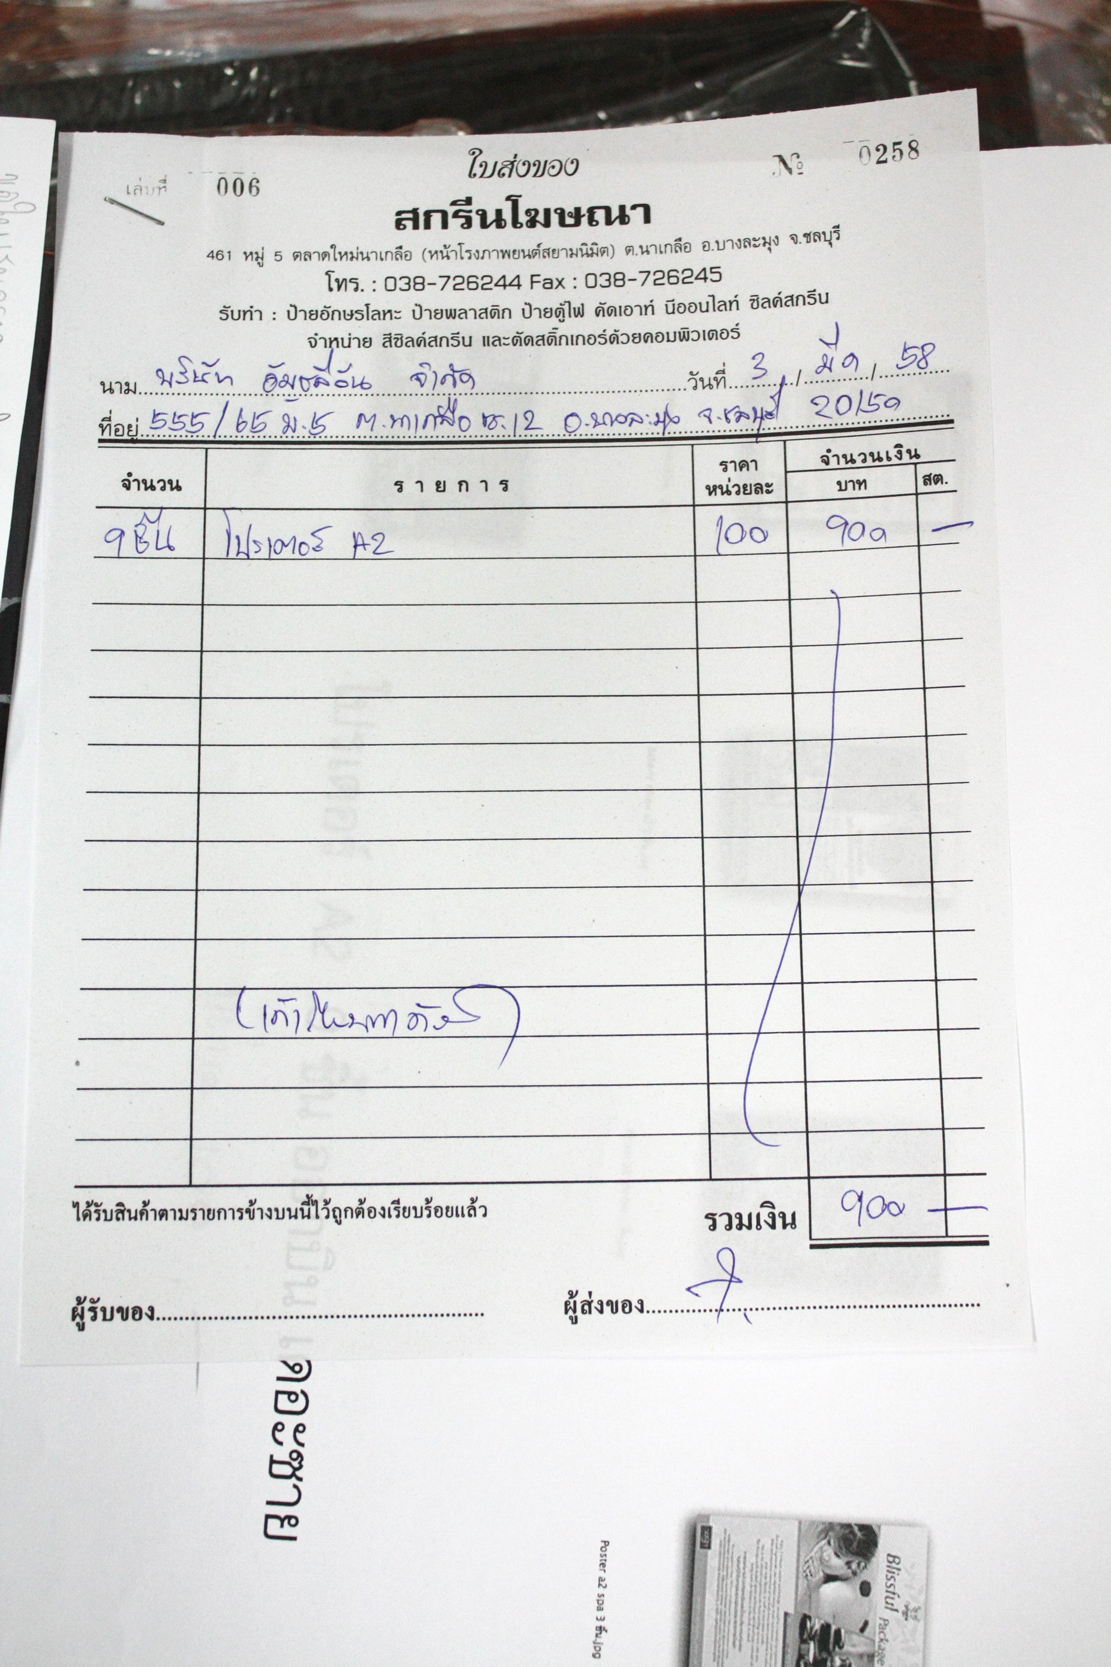 ใบส่งของ
เล่มที่ 006 № 0258
สกรีนโฆษณา
461 หมู่ 5 ตลาดใหม่นาเกลือ (หน้าโรงภาพยนต์สยามนิมิต) ต.นาเกลือ อ.บางละมุง จ.ชลบุรี
โทร. : 038-726244 Fax : 038-726245
รับทำ : ป้ายอักษรโลหะ ป้ายพลาสติก ป้ายตู้ไฟ คัดเอาท์ นีออนไลท์ ซิลค์สกรีน
จำหน่าย สีซิลค์สกรีน และตัดสติ๊กเกอร์ด้วยคอมพิวเตอร์
นาม บริษัท จำกัด วันที่ 3 / มีค / 58
ที่อยู่ 555/65 ม.5 ต.นาเกลือ ซ.12 อ.บางละมุง จ.ชลบุรี 20150
จำนวน รายการ ราคาหน่วยละ จำนวนเงิน บาท สต.
9 ชิ้น โปรเตอร์ A2 100 900 —
ได้รับสินค้าตามรายการข้างบนนี้ไว้ถูกต้องเรียบร้อยแล้ว
รวมเงิน 900 —
ผู้รับของ ผู้ส่งของ
เคอะซาย
Poster a2 spa 3 ชิ้น.jpg
Blissful Package